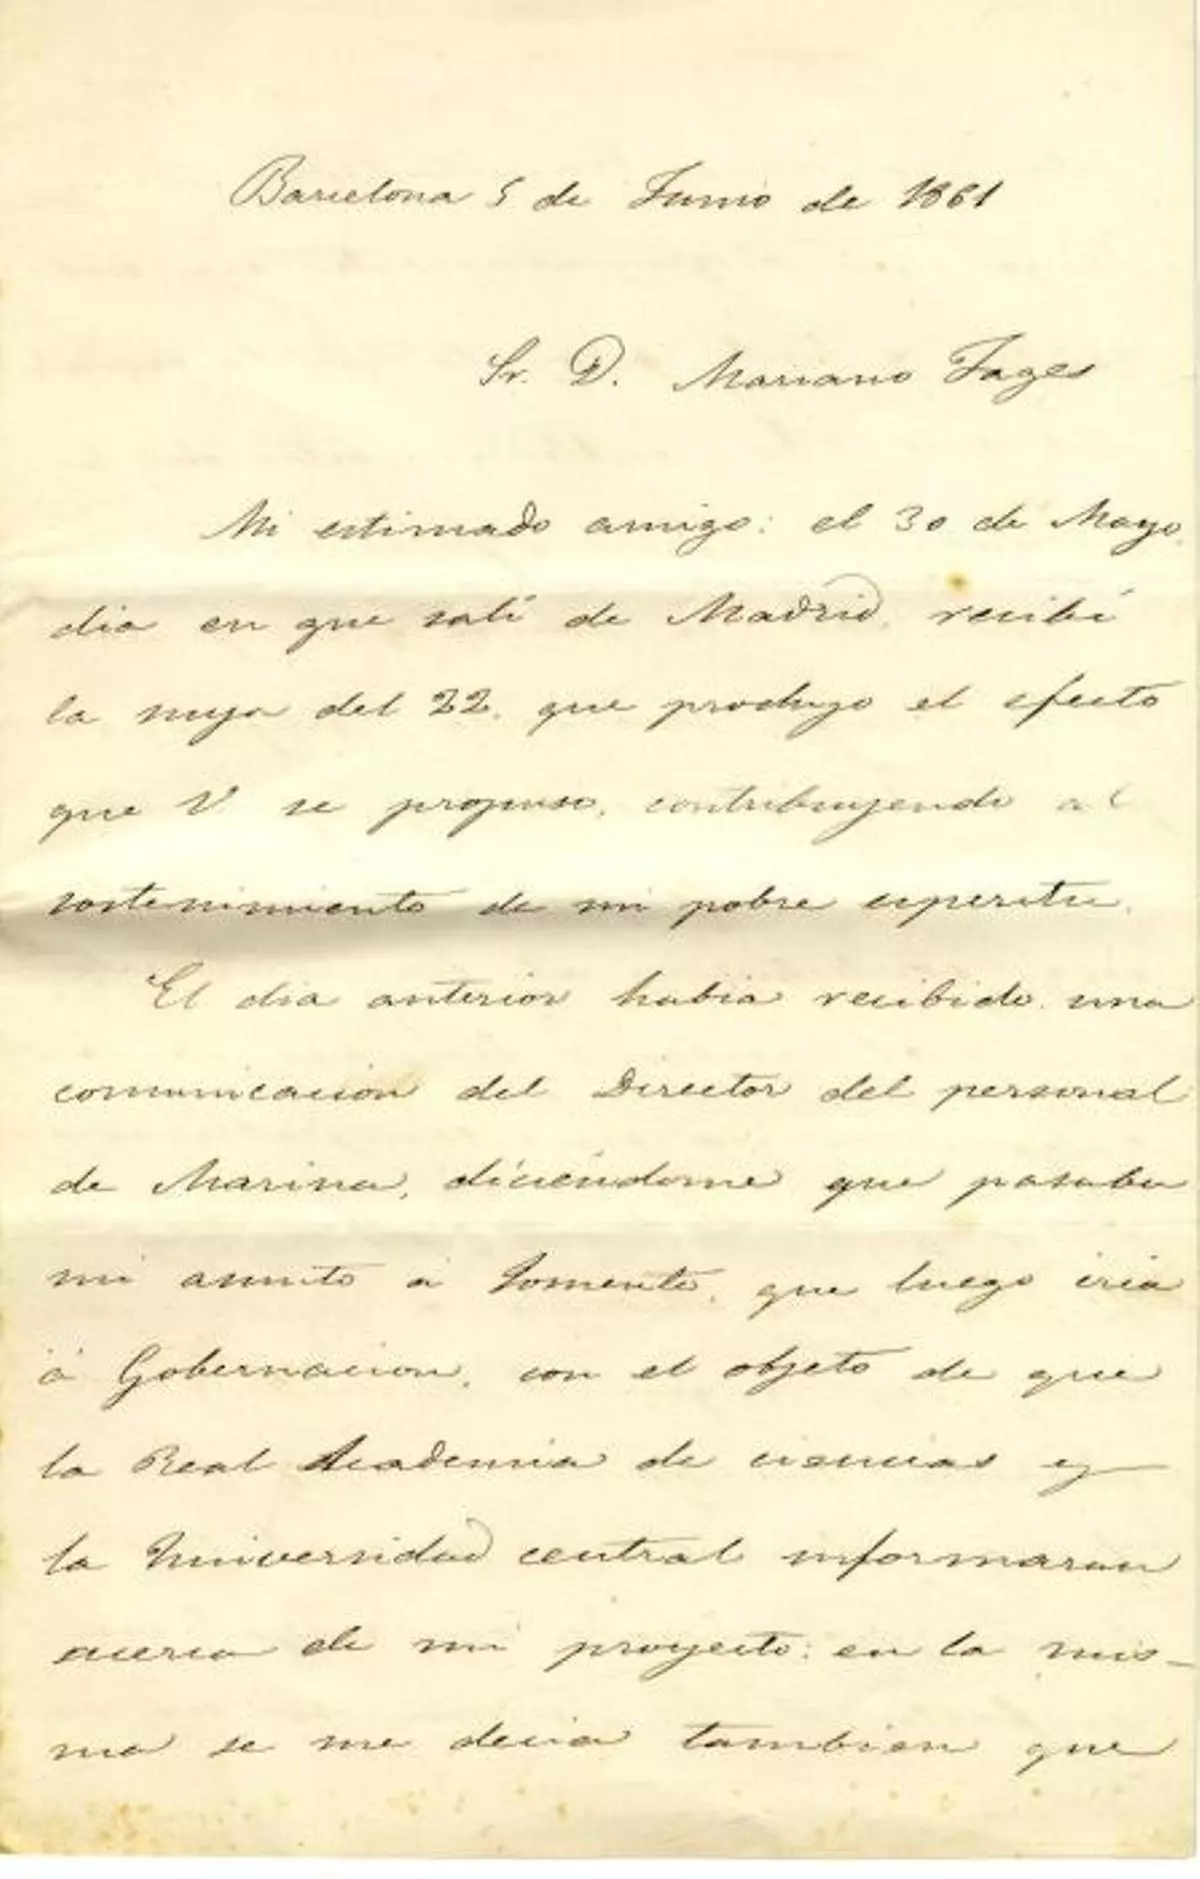 Barcelona 5 de Junio de 1861
Sr. D. Mariano Fages
Mi estimado amigo: el 30 de Mayo,
dia en que salí de Madrid, recibí
la suya del 22, que produjo el efecto
que V se propuso, contribuyendo al
sostenimiento de mi pobre espiritu.
El dia anterior habia recibido una
comunicacion del Director del personal
de Marina, diciéndome que pasaba
mi asunto á Fomento, que luego iria
á Gobernacion, con el objeto de que
la Real Academia de ciencias y
la Universidad central informaran
acerca de mi proyecto: en la mis-
ma se me decia tambien que